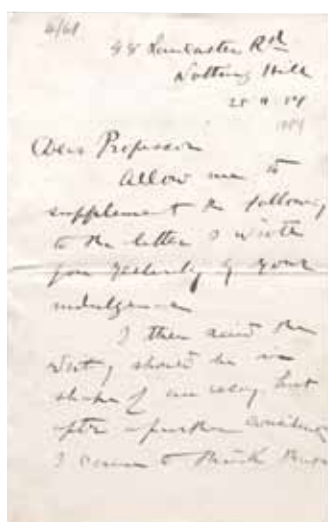 4/68
44 Lancaster Rd
Notting Hill
25 4 
1889
Dear Professor
Allow me to
supplement the following
to the letter I wrote
you yesterday by your
indulgence
I then said the
should be in
shape of an essay but
after further
I came to think